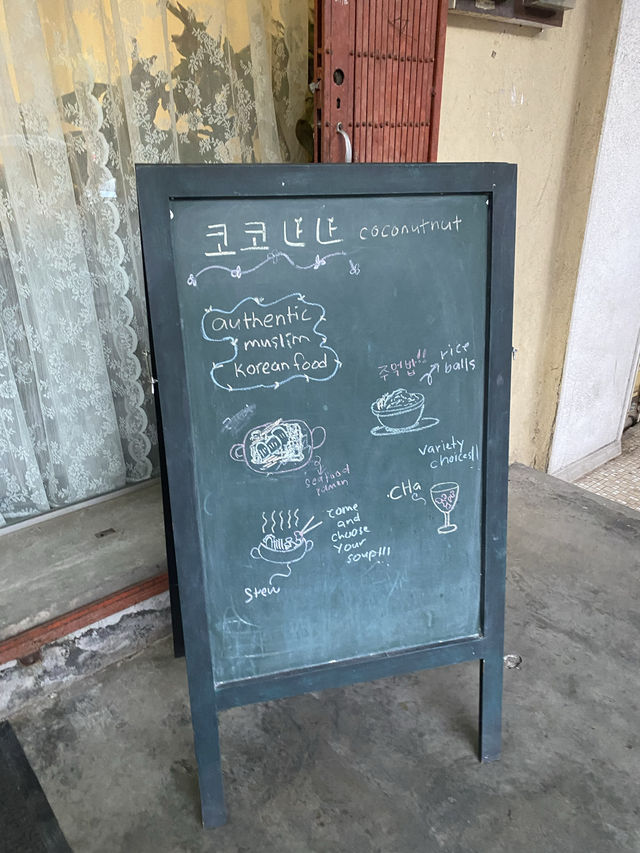 코코나나 coconutnut
authentic
muslim
korean food
주먹밥!! rice
balls
seafood
ramen
variety
choices!!
CHa
come
and
choose
your
soup!!!
stew